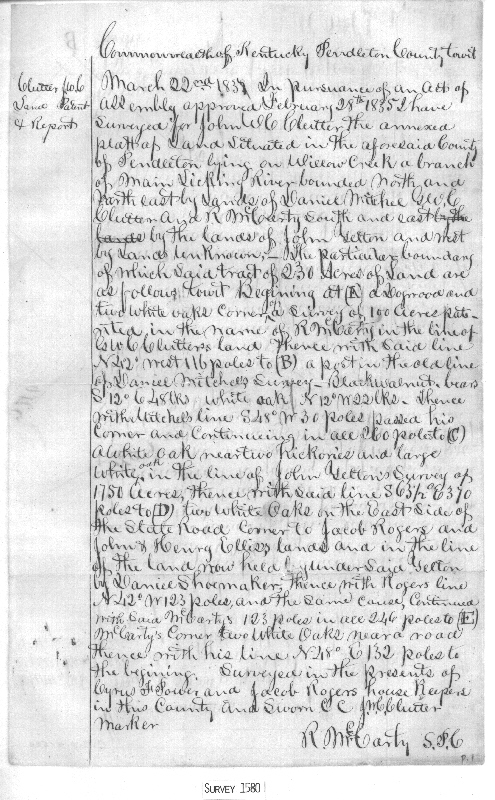 Commonwealth of Kentucky Pendleton County towit
Clutter JWC
Land Patent
& Report
March 22nd 1837 In pursuance of an Act of
Assembly approved February 28th 1835 I have
Surveyed for John W C Clutter the annexed
plat of Land Situated in the aforesaid County
of Pendleton lying on Willow Creek a branch
of Main Licking River bounded North and
North east by Lands of Daniel Mitchel GWC
Clutter And R McCarty South and east by the
lands by the lands of John Yelton and West
by Lands Unknown,- The particular boundary
of which Said tract of 230 Acres of Land are
as follows towit Begining at (A) a Dogwood and
two white oaks Corner to a Survey of 100 Acres pat-
ented in the name of R McCarty in the line of
GWC Clutters land Thence with Said line
N42° West 116 poles to (B) a post in the old line
of Daniel Mitchels Survey - Blackwalnut bears
S12° E 48lks, white oak N12° W 22lks - Thence
with Mitchels line S48° W 30 poles passed his
Corner and Continueing in all 260 poles to (C)
A White oak near two hickories and large
White oak in the line of John Yeltons Survey of
1750 Acres, thence with Said line S65½° E 370
poles to (D) two White Oaks on the East Side of
the State Road Corner to Jacob Rogers and
John & Henry Ellis's lands and in the line
of the land now held by under Said Yelton
by Daniel Shoemaker, thence with Rogers line
N42° W 123 poles, and the Same cause, Continued
with Said McCarty's 123 poles in all 246 poles to (E)
McCarty's Corner two White Oaks near a road
thence with his line N48° E 132 poles to
the begining. Surveyed in the presents of
Cyrus F Power and Jacob Rogers house Keepers
in this County and Sworn C C J M Clutter
Marker
R McCarty S.P.C
P. 1
SURVEY 1580